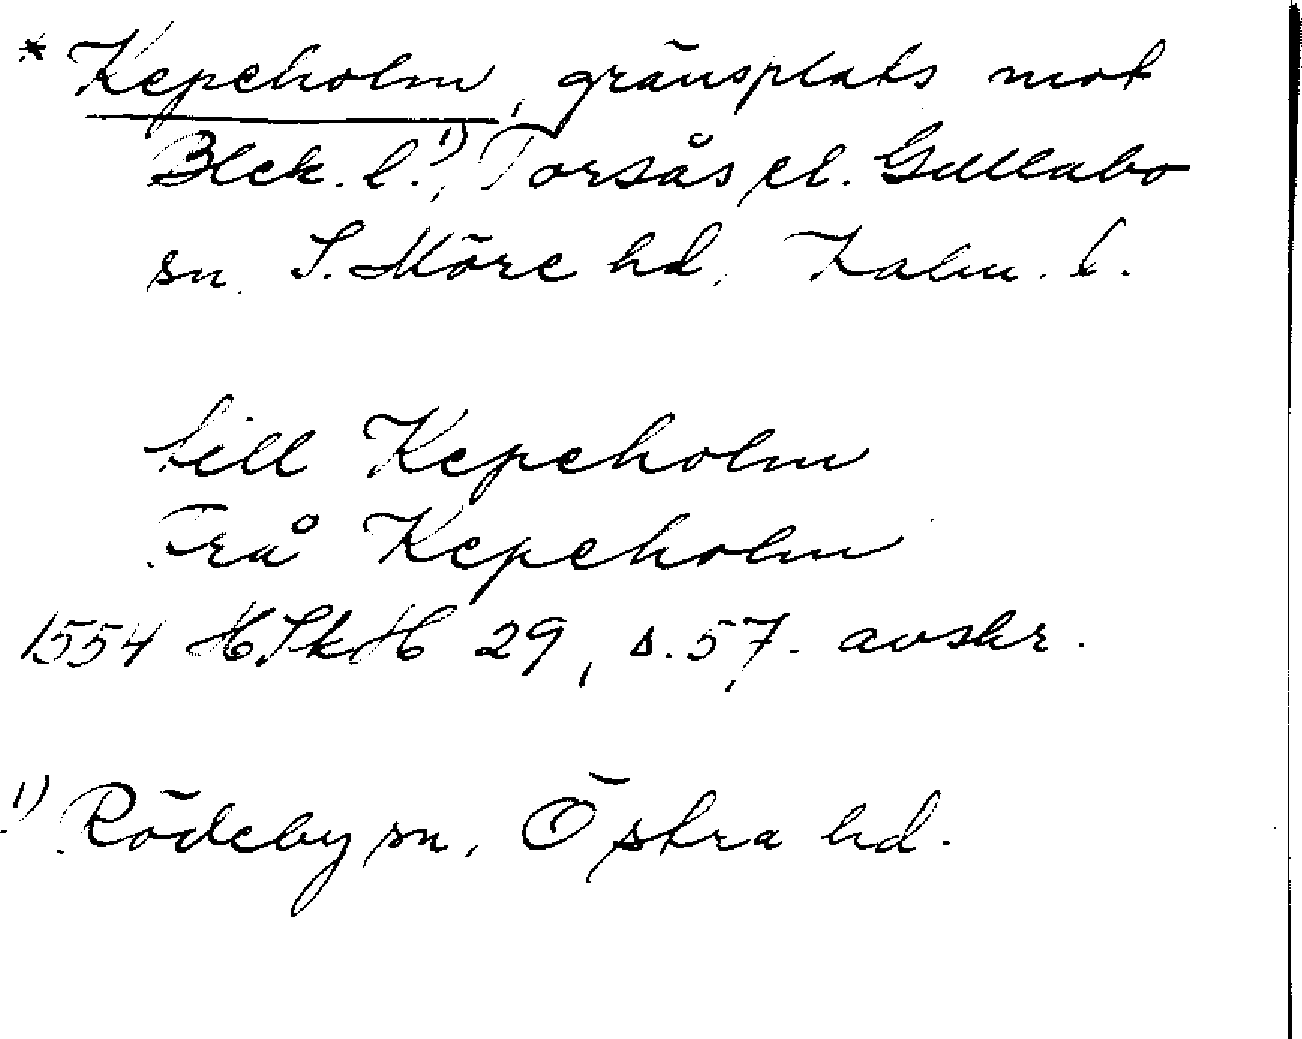 * Kepeholm, gränsplats mot
Blek. l.¹⁾, Torsås el. Gullabo
sn. S. Möre hd, Kalm. l.
till Kepeholm
Frå Kepeholm
1554 HSkH 29, s. 57. avskr.
¹⁾ Rödeby sn, Östra hd.